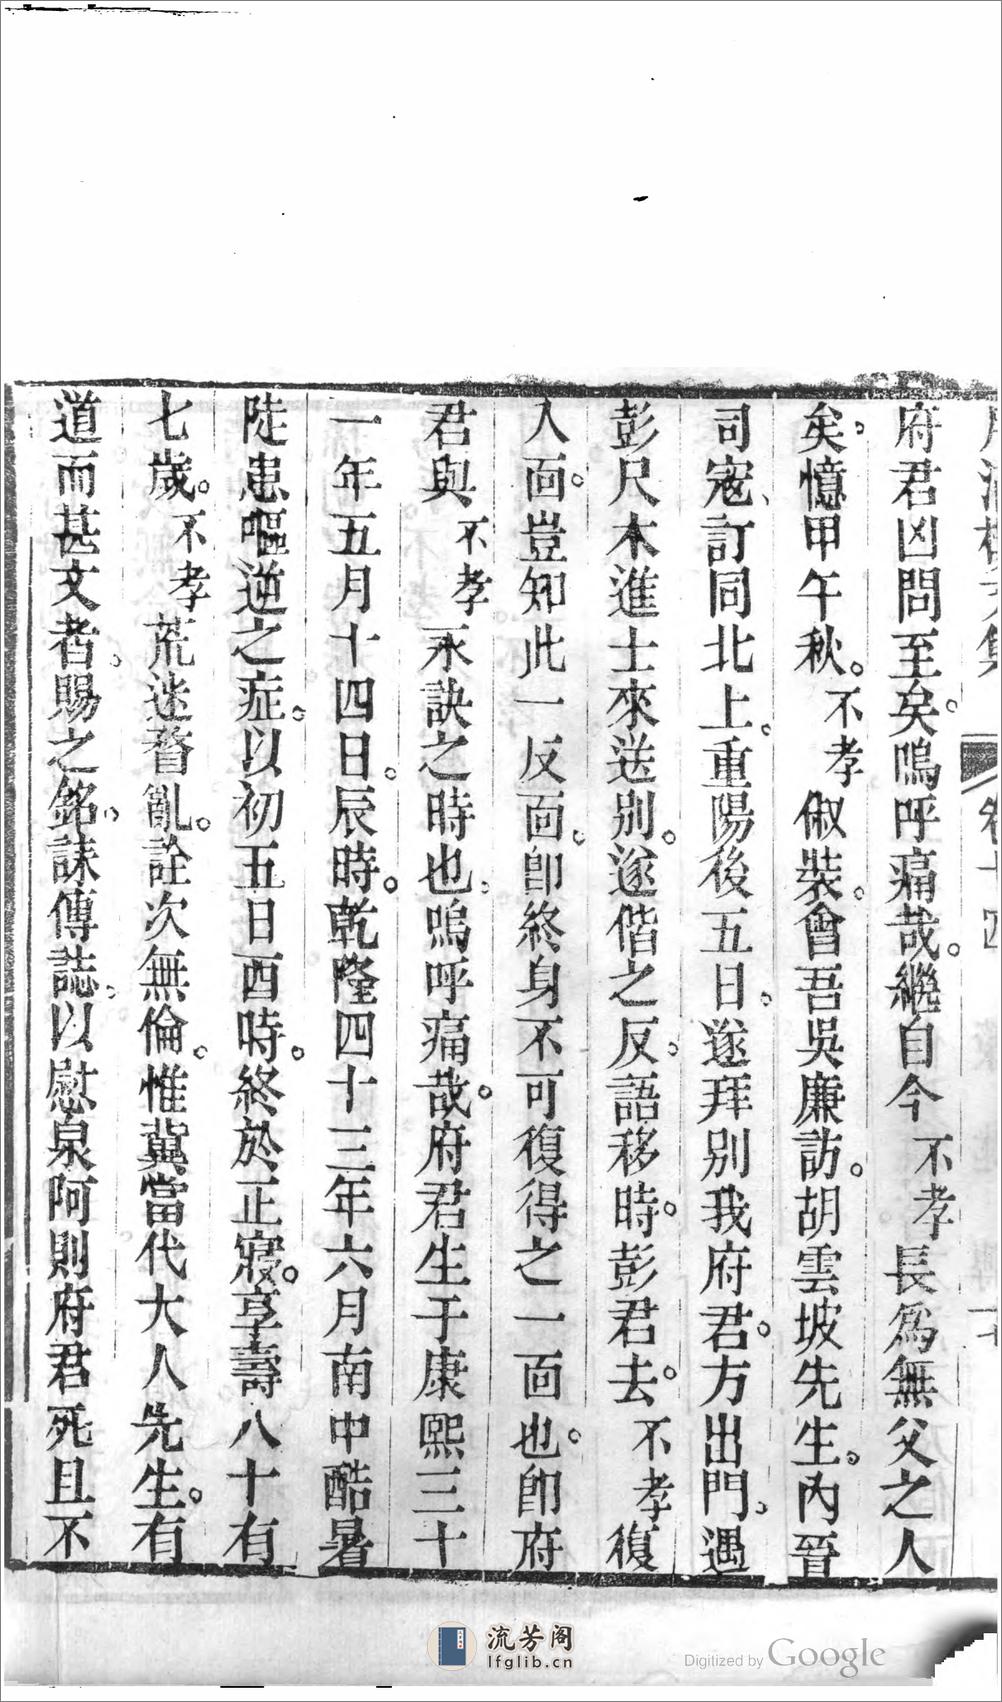 府君凶問至矣嗚呼痛哉繼自今不孝長爲無父之人
矣憶甲午秋不孝俶裝會吾吳廉訪胡雲坡先生內晉
司寇訂同北上重陽後五日遂拜別我府君方出門遇
彭尺木進士來送别遂偕之反語移時彭君去不孝復
入面豈知此一反面卽終身不可復得之一面也卽府
君與不孝永訣之時也嗚呼痛哉府君生于康熙三十
一年五月十四日辰時乾隆四十三年六月南中酷暑
陡患嘔逆之症以初五日酉時終於正寢享壽八十有
七歲不孝荒迷瞀亂詮次無倫惟冀當代大人先生有
道而甚文者賜之銘誄傳誌以慰泉阿則府君死且不
流芳阁
lfglib.cn
Digitized by Google